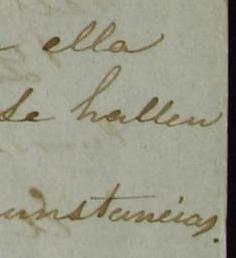 ella
se hallen
unstancias.